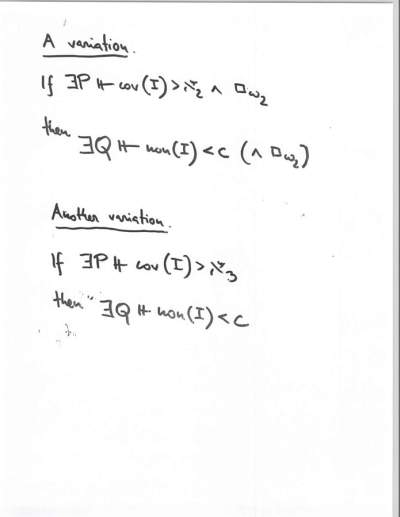 A variation.
If ∃P ⊩ cov(I) > ℵ₂ ∧ □ω₂
then ∃Q ⊩ non(I) < c (∧ □ω₂)
Another variation.
If ∃P ⊩ cov(I) > ℵ₃
then ∃Q ⊩ non(I) < c